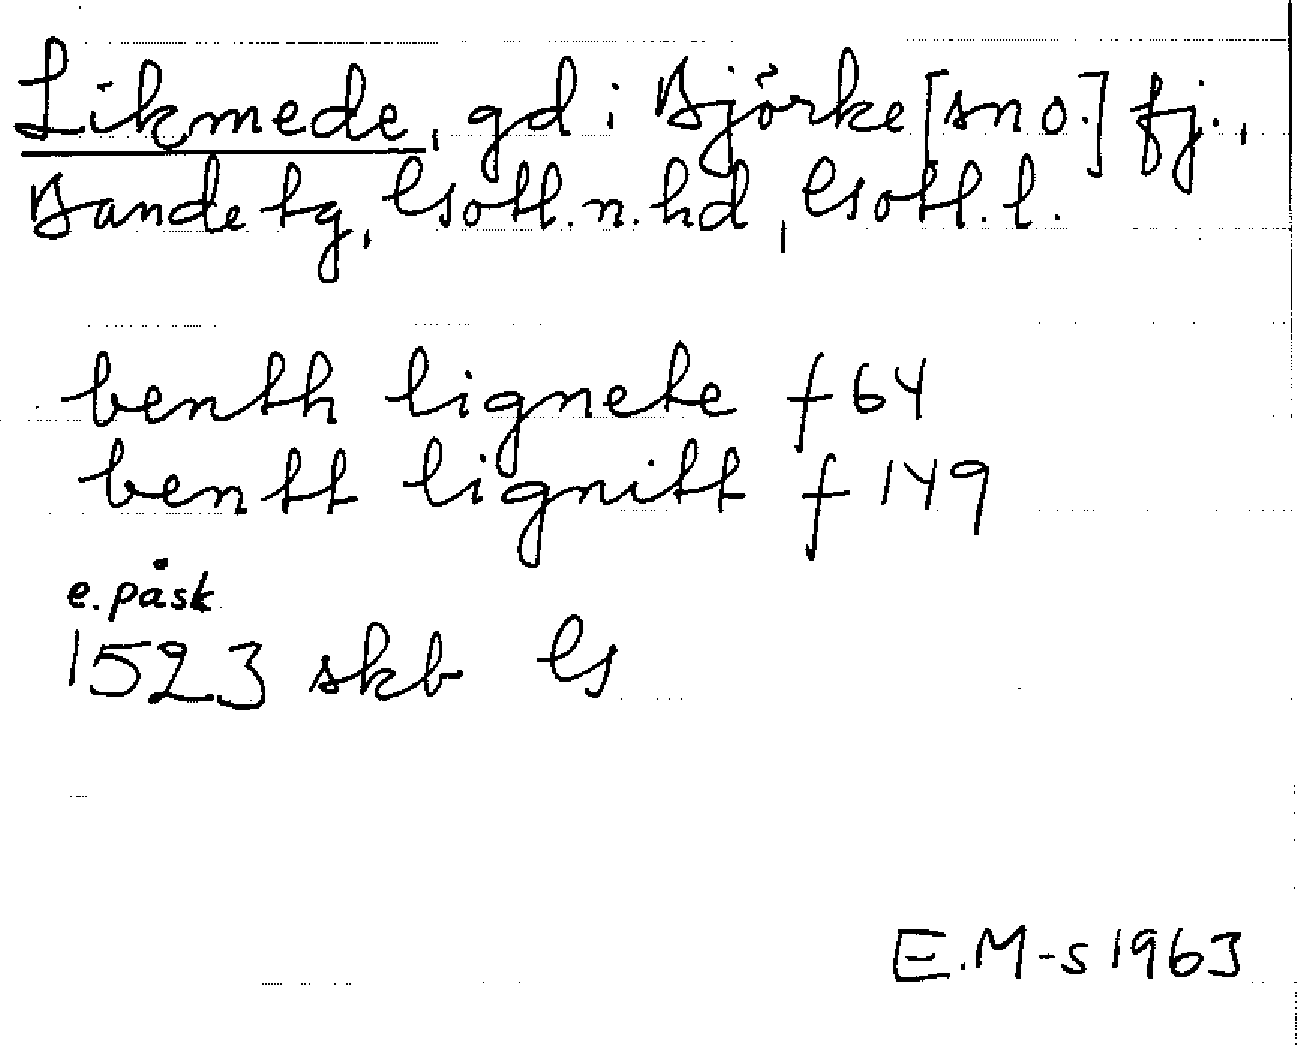 Likmede, gd i Björke [sn o.] fj.,
Bande tg, Gotl. n. hd, Gotl. l.
benth lignete f 64
bentt lignitt f 149
e. påsk
1523 skb G
E.M-s 1963